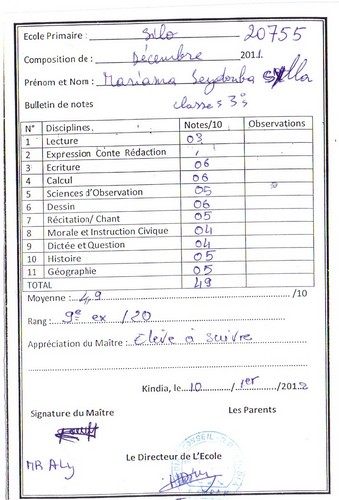 Ecole Primaire : Silo 20755
Composition de : Décembre 2011
Prénom et Nom : Mariama Seydouba Sylla
Bulletin de notes Classes 3è
N° Disciplines Notes/10 Observations
1 Lecture 03
2 Expression Conte Rédaction
3 Ecriture 06
4 Calcul 06
5 Sciences d'Observation 05
6 Dessin 06
7 Récitation/ Chant 05
8 Morale et Instruction Civique 04
9 Dictée et Question 04
10 Histoire 05
11 Géographie 05
TOTAL 49
Moyenne : 4,9 /10
Rang : 9e ex /20
Appréciation du Maître : Elève à suivre
Kindia, le 10 / 1er /2012
Signature du Maître Les Parents
MR Aly
Le Directeur de L'Ecole